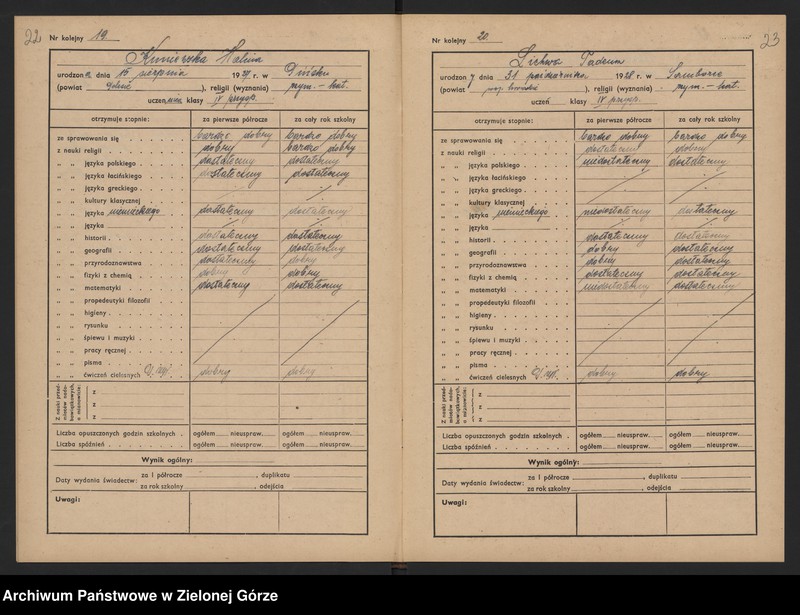 22
Nr kolejny 19.
Kuniewska Halina
urodzona dnia 15 sierpnia 1929 r. w Pińsku
(powiat ), religii (wyznania) rzym. – kat.
uczennica klasy IV przysp.
otrzymuje stopnie: za pierwsze półrocze za cały rok szkolny
ze sprawowania się bardzo dobry bardzo dobry
z nauki religii dobry bardzo dobry
„ „ języka polskiego dostateczny dostateczny
„ „ języka łacińskiego dostateczny dostateczny
„ „ języka greckiego
„ „ kultury klasycznej
„ „ języka niemieckiego dostateczny dostateczny
„ „ języka
„ „ historii dostateczny dostateczny
„ „ geografii dostateczny dostateczny
„ „ przyrodoznawstwa dostateczny dobry
„ „ fizyki z chemią dobry dobry
„ „ matematyki dostateczny dostateczny
„ „ propedeutyki filozofii
„ „ higieny
„ „ rysunku
„ „ śpiewu i muzyki
„ „ pracy ręcznej
„ „ pisma
„ „ ćwiczeń cielesnych dobry dobry
Z nauki przedmiotów nadobowiązkowych, a mianowicie:
z
z
z
Liczba opuszczonych godzin szkolnych ogółem nieuspraw. ogółem nieuspraw.
Liczba spóźnień ogółem nieuspraw. ogółem nieuspraw.
Wynik ogólny:
Daty wydania świadectw: za I półrocze , duplikatu
za rok szkolny , odejścia
Uwagi:
23
Nr kolejny 20.
Lichwa Tadeusz
urodzony dnia 31 października 1928 r. w Samborze
(powiat ), religii (wyznania) rzym. – kat.
uczeń klasy IV przysp.
otrzymuje stopnie: za pierwsze półrocze za cały rok szkolny
ze sprawowania się bardzo dobry bardzo dobry
z nauki religii dostateczny dobry
„ „ języka polskiego niedostateczny dostateczny
„ „ języka łacińskiego
„ „ języka greckiego
„ „ kultury klasycznej
„ „ języka niemieckiego niedostateczny dostateczny
„ „ języka
„ „ historii dostateczny dostateczny
„ „ geografii dobry dostateczny
„ „ przyrodoznawstwa dobry dostateczny
„ „ fizyki z chemią dostateczny dostateczny
„ „ matematyki niedostateczny dostateczny
„ „ propedeutyki filozofii
„ „ higieny
„ „ rysunku
„ „ śpiewu i muzyki
„ „ pracy ręcznej
„ „ pisma
„ „ ćwiczeń cielesnych dobry dobry
Z nauki przedmiotów nadobowiązkowych, a mianowicie:
z
z
z
Liczba opuszczonych godzin szkolnych ogółem nieuspraw. ogółem nieuspraw.
Liczba spóźnień ogółem nieuspraw. ogółem nieuspraw.
Wynik ogólny:
Daty wydania świadectw: za I półrocze , duplikatu
za rok szkolny , odejścia
Uwagi:
Archiwum Państwowe w Zielonej Górze